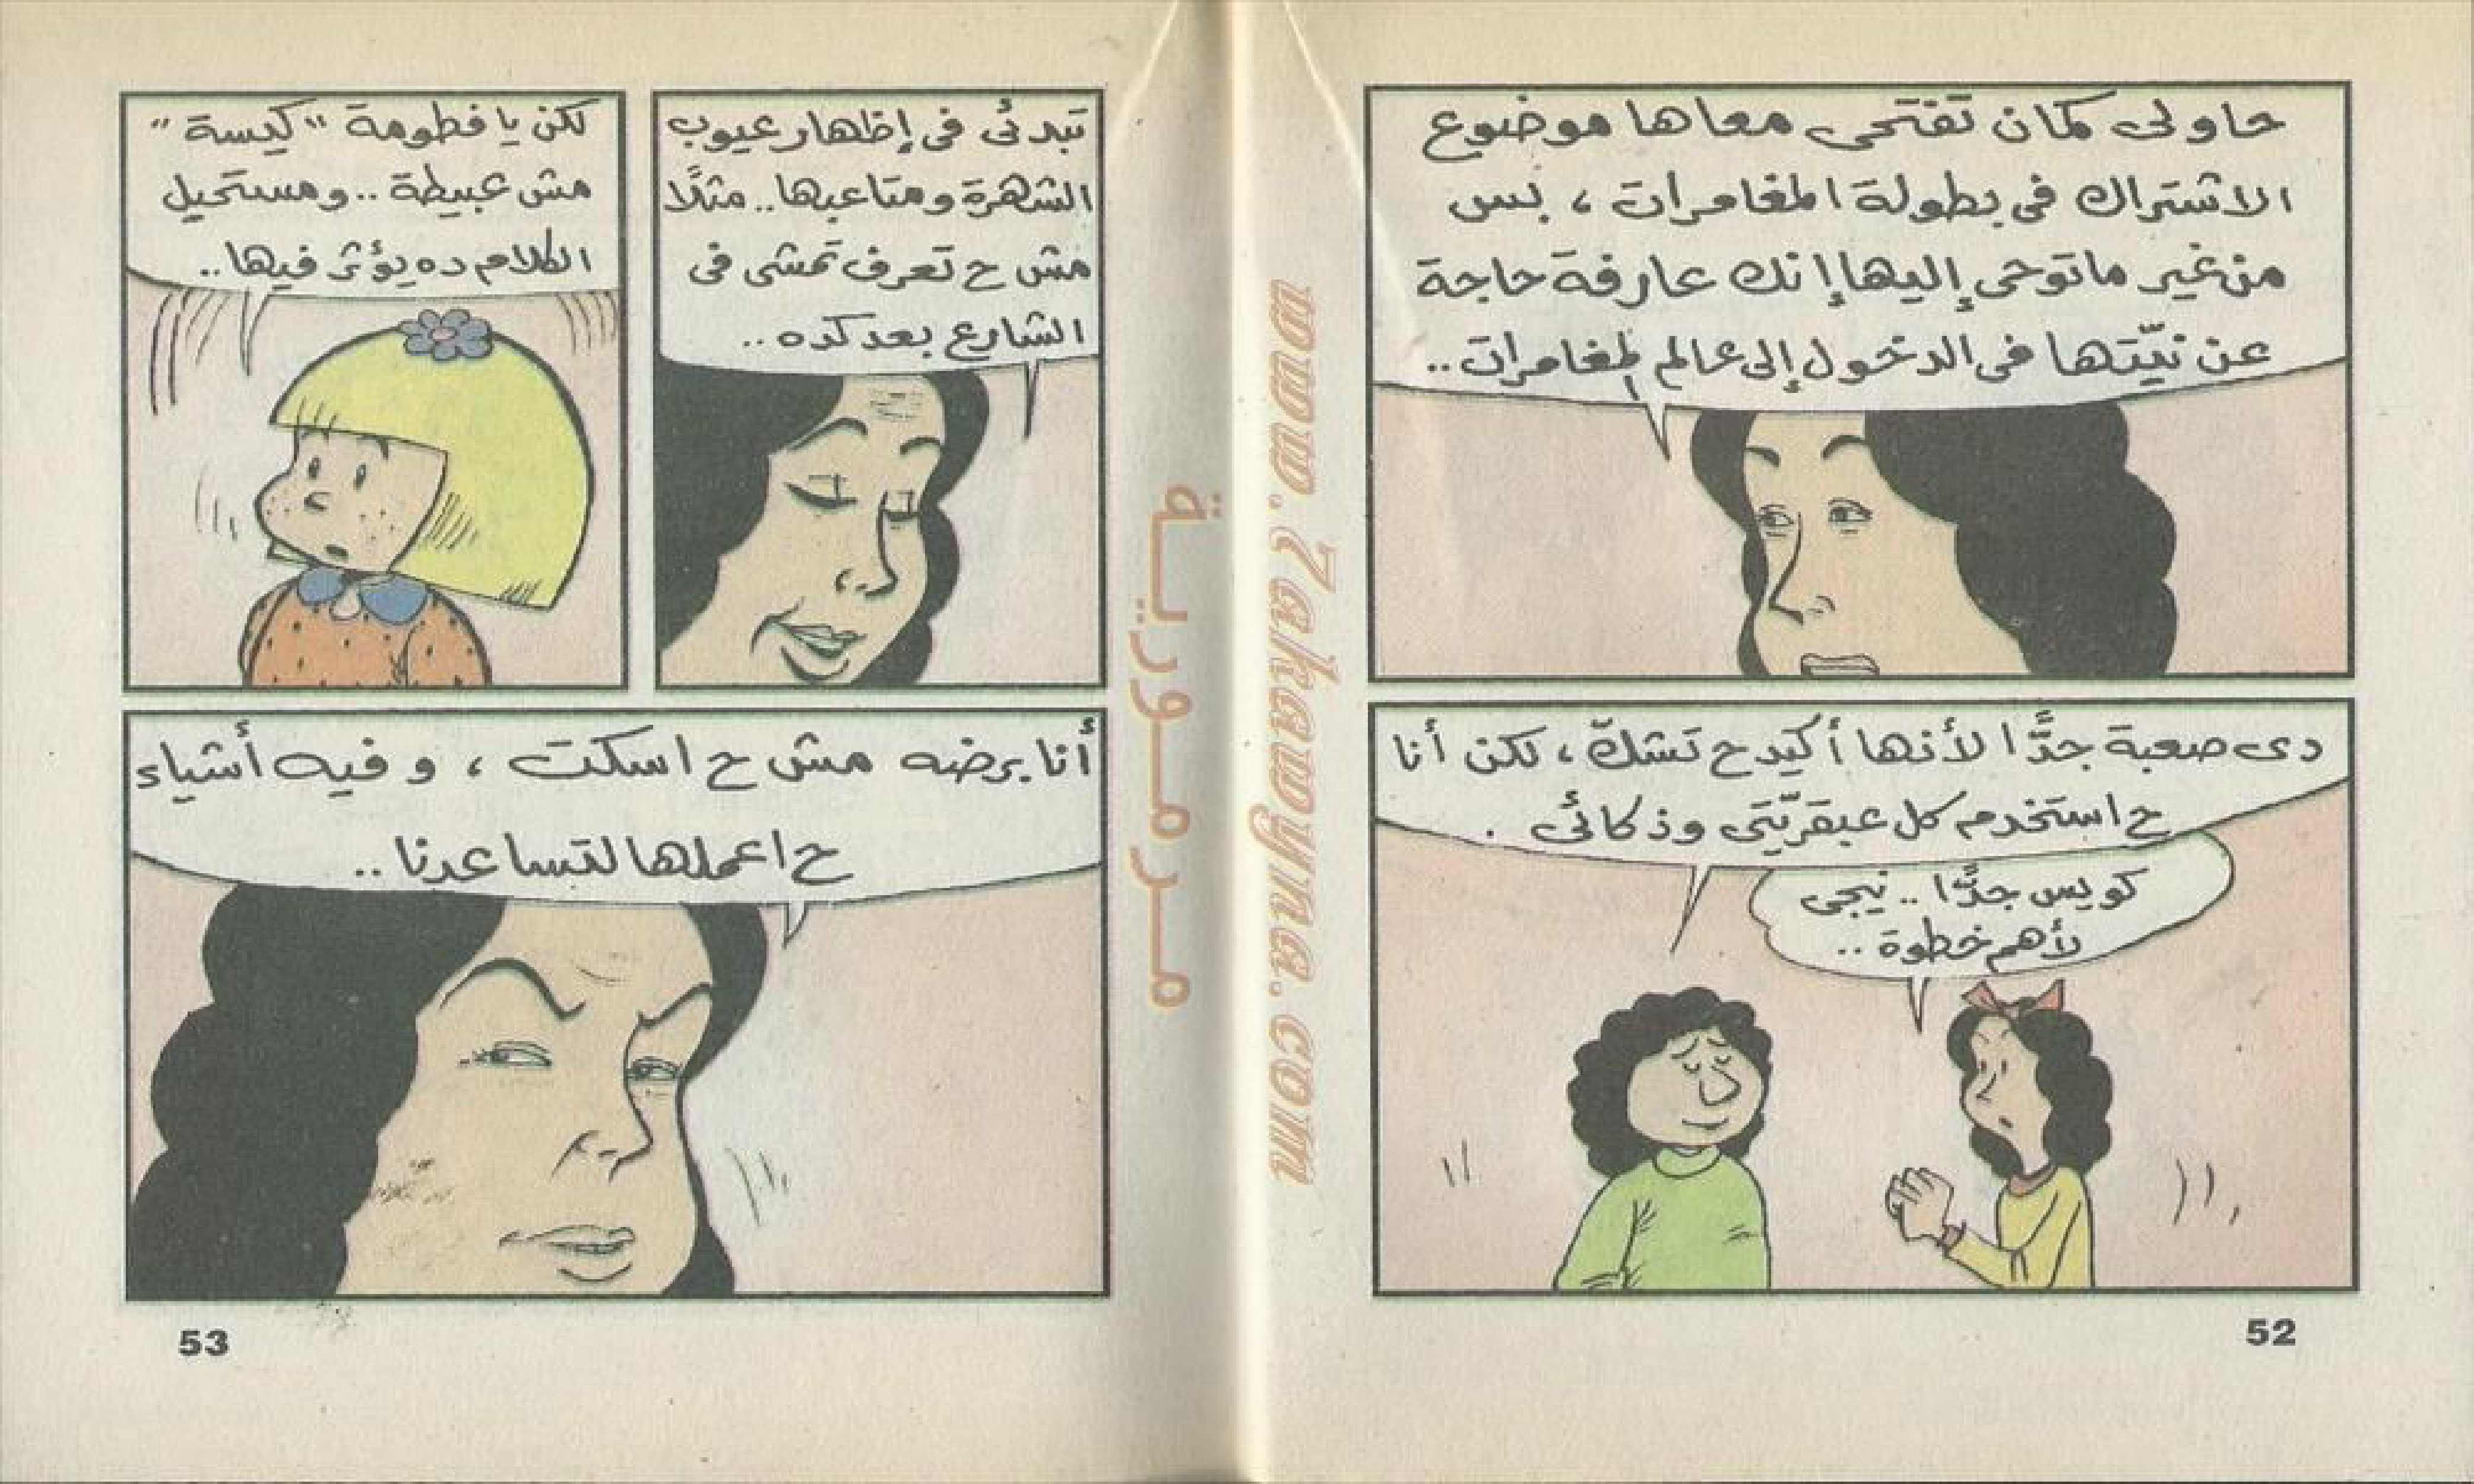 حاولى كمان تفتحى معاها موضوع
الاشتراك فى بطولة المغامرات ، بس
من غير ماتوحى إليها إنك عارفة حاجة
عن نيّتها فى الدخول إلى عالم المغامرات ..
دى صعبة جدًّا لأنها أكيد ح تشكّ ، لكن أنا
ح استخدم كل عبقريّتى وذكائى .
كويس جدًّا .. نيجى
لأهم خطوة ..
52
www.7akawyna.com
مرمورية
تبدئى فى إظهار عيوب
الشهرة ومتاعبها .. مثلًا
مش ح تعرف تمشى فى
الشارع بعد كده ..
لكن يا فطومة "كيسة"
مش عبيطة .. ومستحيل
الكلام ده يؤثر فيها ..
أنا برضه مش ح اسكت ، وفيه أشياء
ح اعملها لتساعدنا ..
53